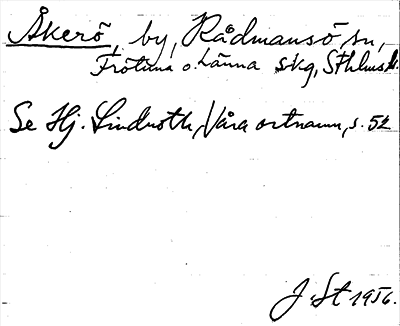 Åkerö, by, Rådmansö sn,
Frötuna o. Länna skg, Sthlms l.
Se Hj. Lindroth, Våra ortnamn, s. 52
J. St 1956.